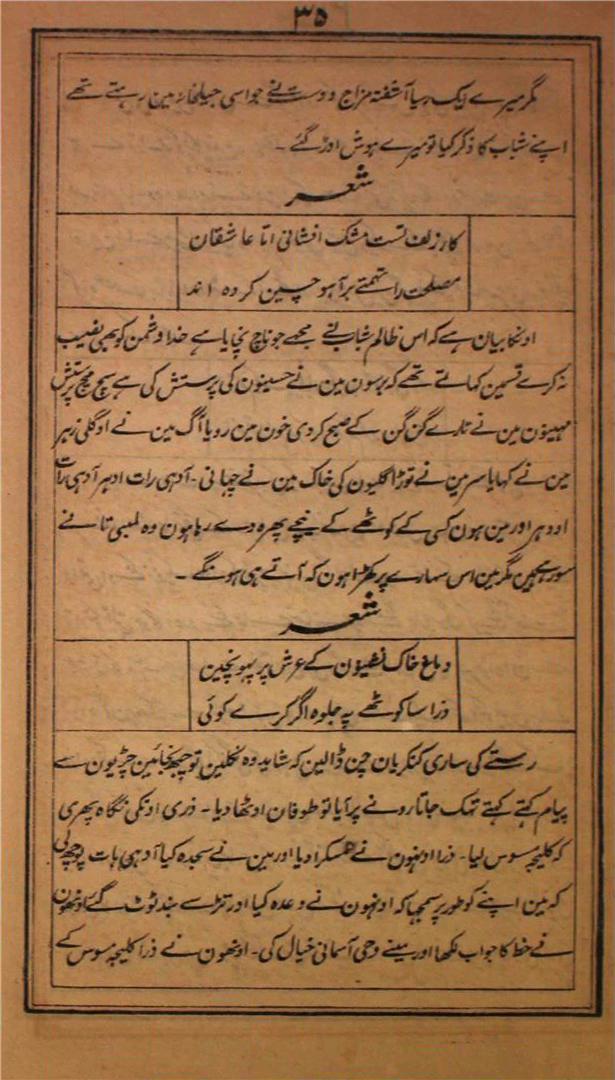 ۳۵
مگر میرے ایک بیا آشفتہ مزاج دوست نے جو اسی جیلخانہ مین رہتے تھے
اپنے شباب کا ذکر کیا تو میرے ہوش اوڑ گئے ۔
شعر
کار زلف تست مشک افشانی اما عاشقان
مصلحت را تہمتے بر آہوے چین کردہ اند
اونکا بیان ہے کہ اس ظالم شباب نے مجھے جو ناچ نچایا ہے خدا دشمن کو بھی نصیب
نہ کرے قسمین کھاتے تھے کہ برسون مین نے حسینون کی پرستش کی ہے سچ مچ پرستش
مہینون مین نے تارے گن گن کے صبح کر دی خون مین رویا آگ مین نے اوگلی زہر
مین نے کہایا سر مین نے توڑا گلیون کی خاک مین نے چہانی ۔ آدہی رات ادہر آدہی رات
اودہر اور مین ہون کسی کے کوٹھے کے نیچے پہرہ دے رہا ہون وہ لمبی تانے
سو رہے ہین مگر مین اس سہارے پر کھڑا ہون کہ آتے ہی ہونگے ۔
شعر
دماغ خاک نشینون کے عرش پر پہونچین
ذرا سا کوٹھے پہ جلوہ اگر کرے کوئی
رستے کی ساری کنکریان چن ڈالین کہ شاید وہ نکلین تو چبھ نجائین چڑیون سے
پیام کہتے کہتے تہک جاتا رونے پر آیا تو طوفان اوٹھا دیا ۔ ذری اونکی نگاہ پھری
کہ کلیجہ مسوس لیا ۔ ذرا اونہون نے مسکرا دیا اور مین نے سجدہ کیا آدہی بات پوچھ لی
کہ مین اپنے کو طور پر سمجہا کہ اونہون نے وعدہ کیا اور تڑ سے بند ٹوٹ گئے اونھون
نے خط کا جواب لکھا اور مینے وحی آسمانی خیال کی ۔ اونھون نے ذرا کلیجہ مسوس کے